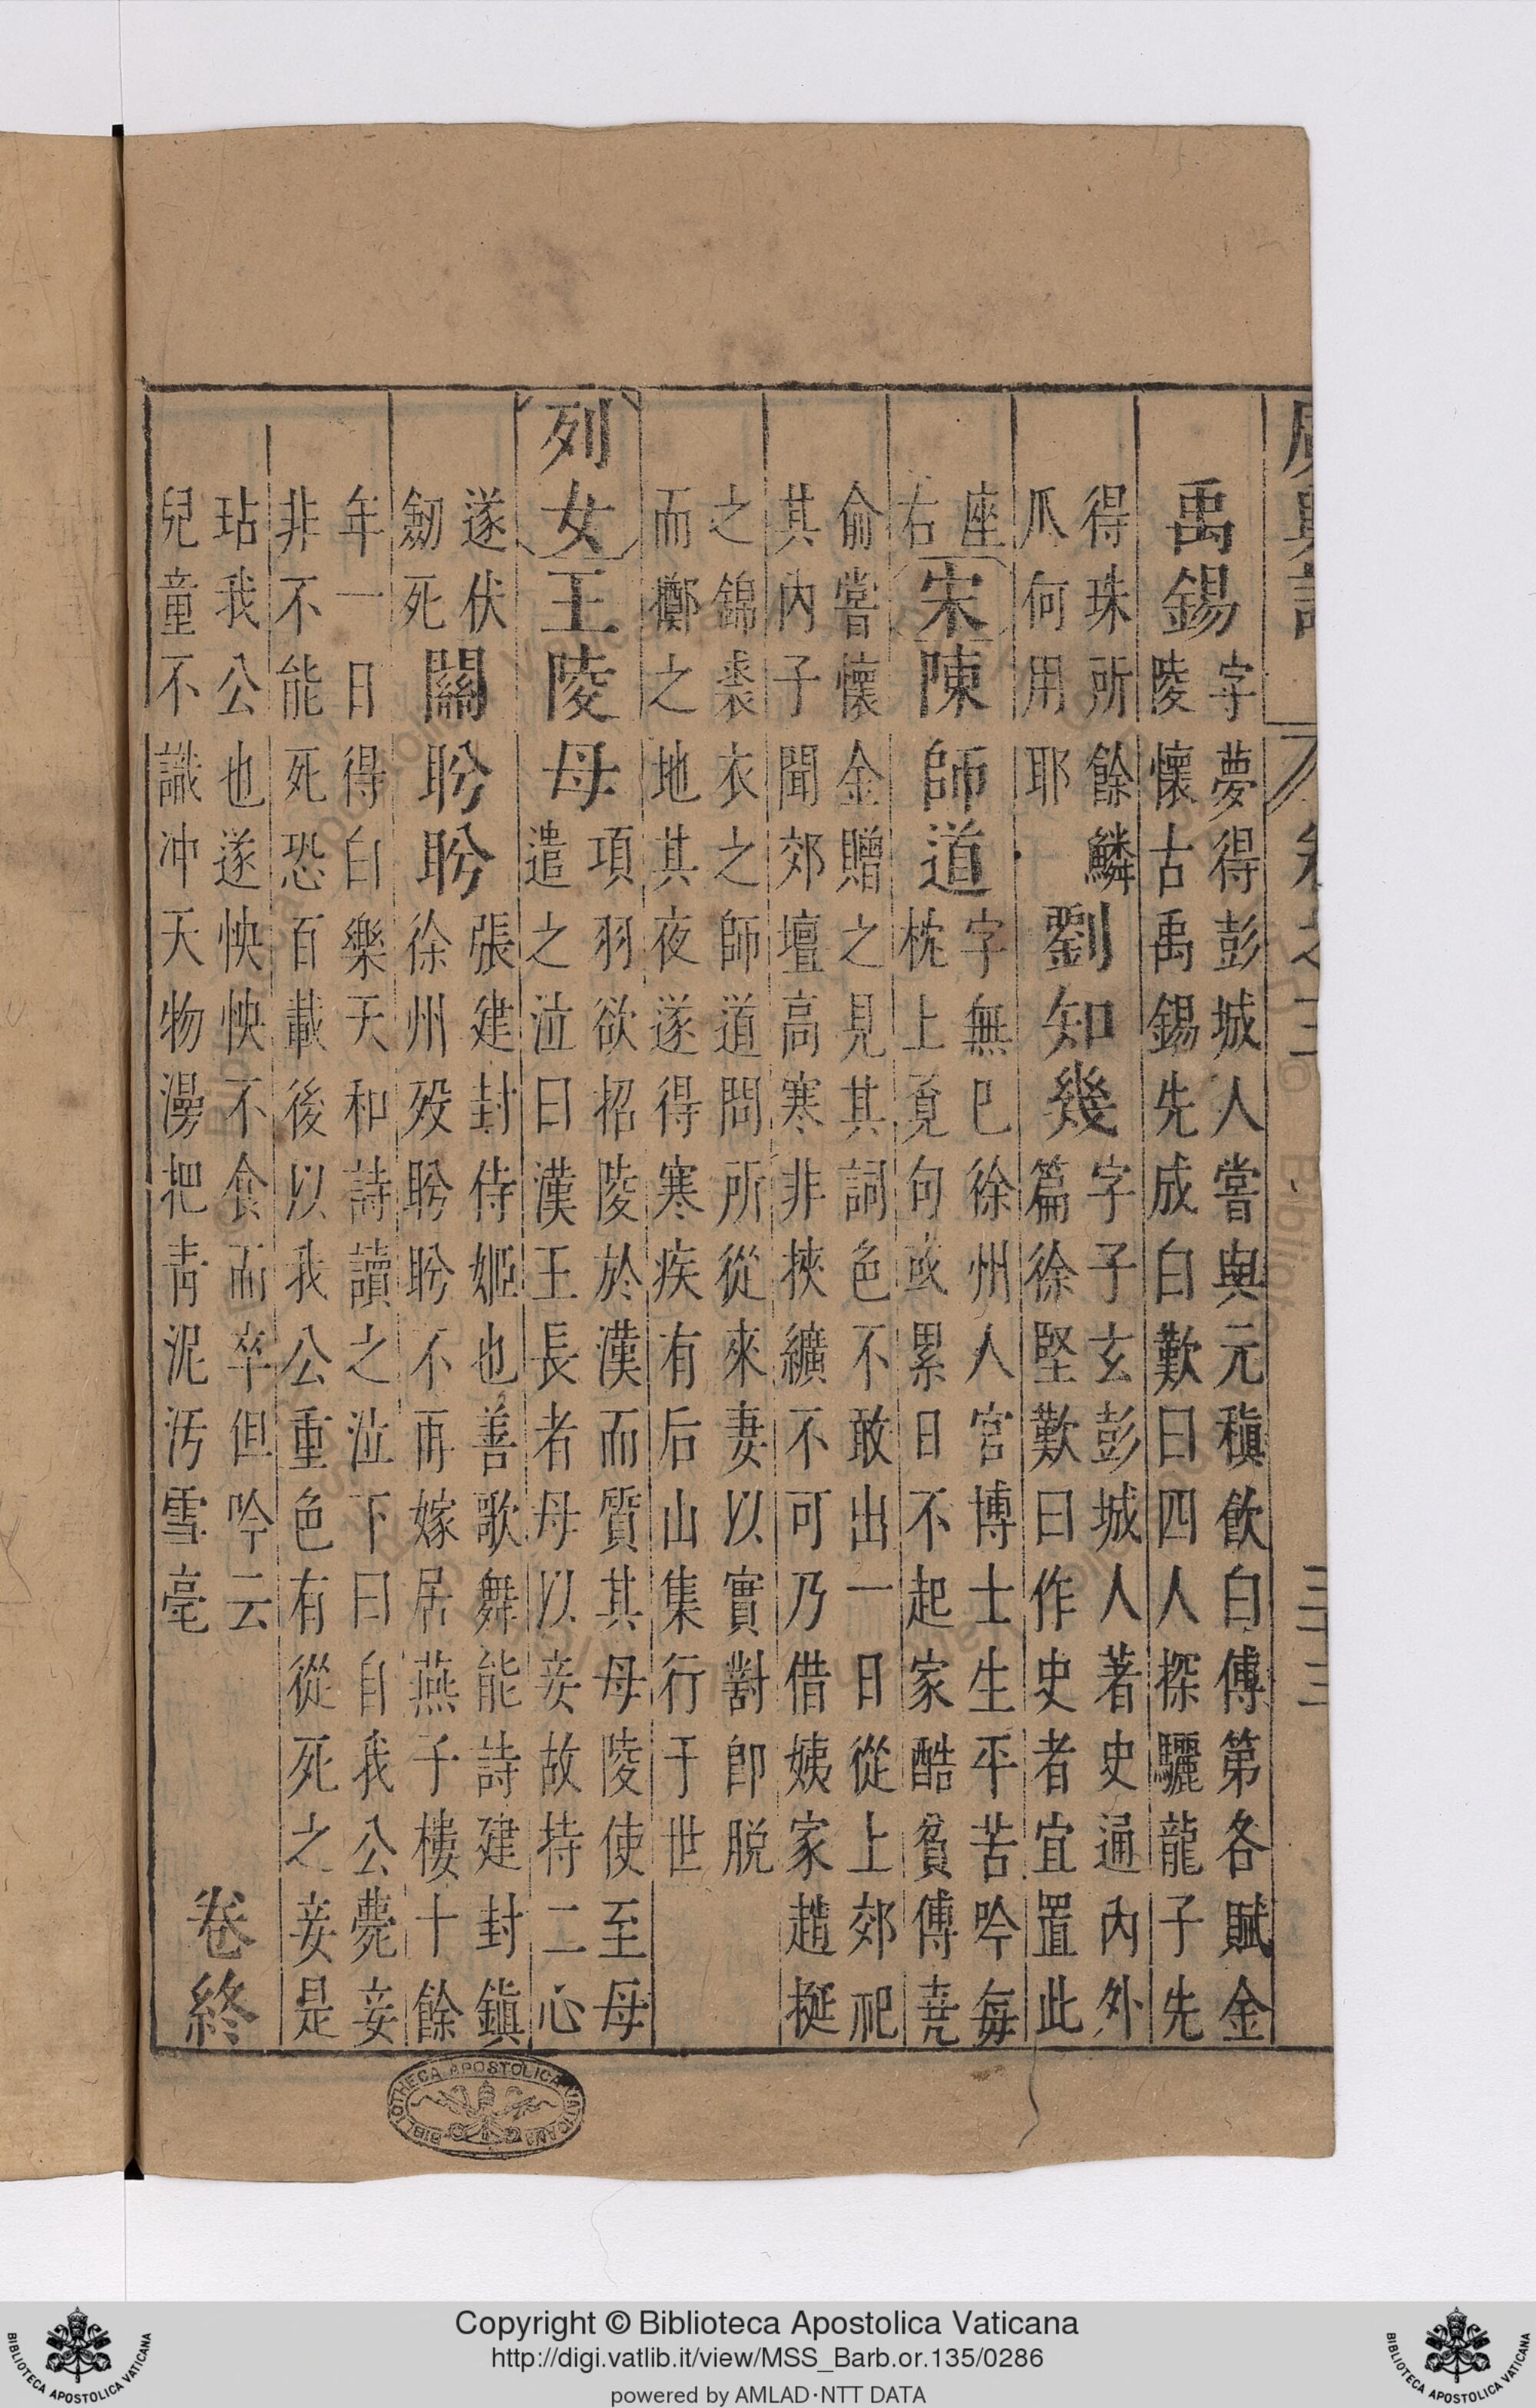 廣輿記 卷之三
禹錫
字夢得彭城人嘗與元稹飲白傅第各賦金
陵懷古禹錫先成白歎曰四人探驪龍子先
得珠所餘鱗
爪何用耶
劉知幾
字子玄彭城人著史通內外
篇徐堅歎曰作史者宜置此
座
右
宋
陳師道
字無已徐州人官博士生平苦吟每
枕上覓句或累日不起家酷貧傅堯
俞嘗懷金贈之見其詞色不敢出一日從上郊祀
其內子聞郊壇高寒非挾纊不可乃借姨家趙挺
之錦裘衣之師道問所從來妻以實對即脫
而擲之地其夜遂得寒疾有后山集行于世
列女
王陵母
項羽欲招陵於漢而質其母陵使至母
遣之泣曰漢王長者母以妾故持二心
遂伏
劒死
關盼盼
張建封侍姬也善歌舞能詩建封鎮
徐州歿盼盼不再嫁居燕子樓十餘
年一日得白樂天和詩讀之泣下曰自我公薨妾
非不能死恐百載後以我公重色有從死之妾是
玷我公也遂怏怏不食而卒但吟云
兒童不識冲天物漫把青泥汚雪毫
卷終
BIBLIOTHECA APOSTOLICA VATICANA
Copyright © Biblioteca Apostolica Vaticana
http://digi.vatlib.it/view/MSS_Barb.or.135/0286
powered by AMLAD·NTT DATA
BIBLIOTECA APOSTOLICA VATICANA
BIBLIOTECA APOSTOLICA VATICANA